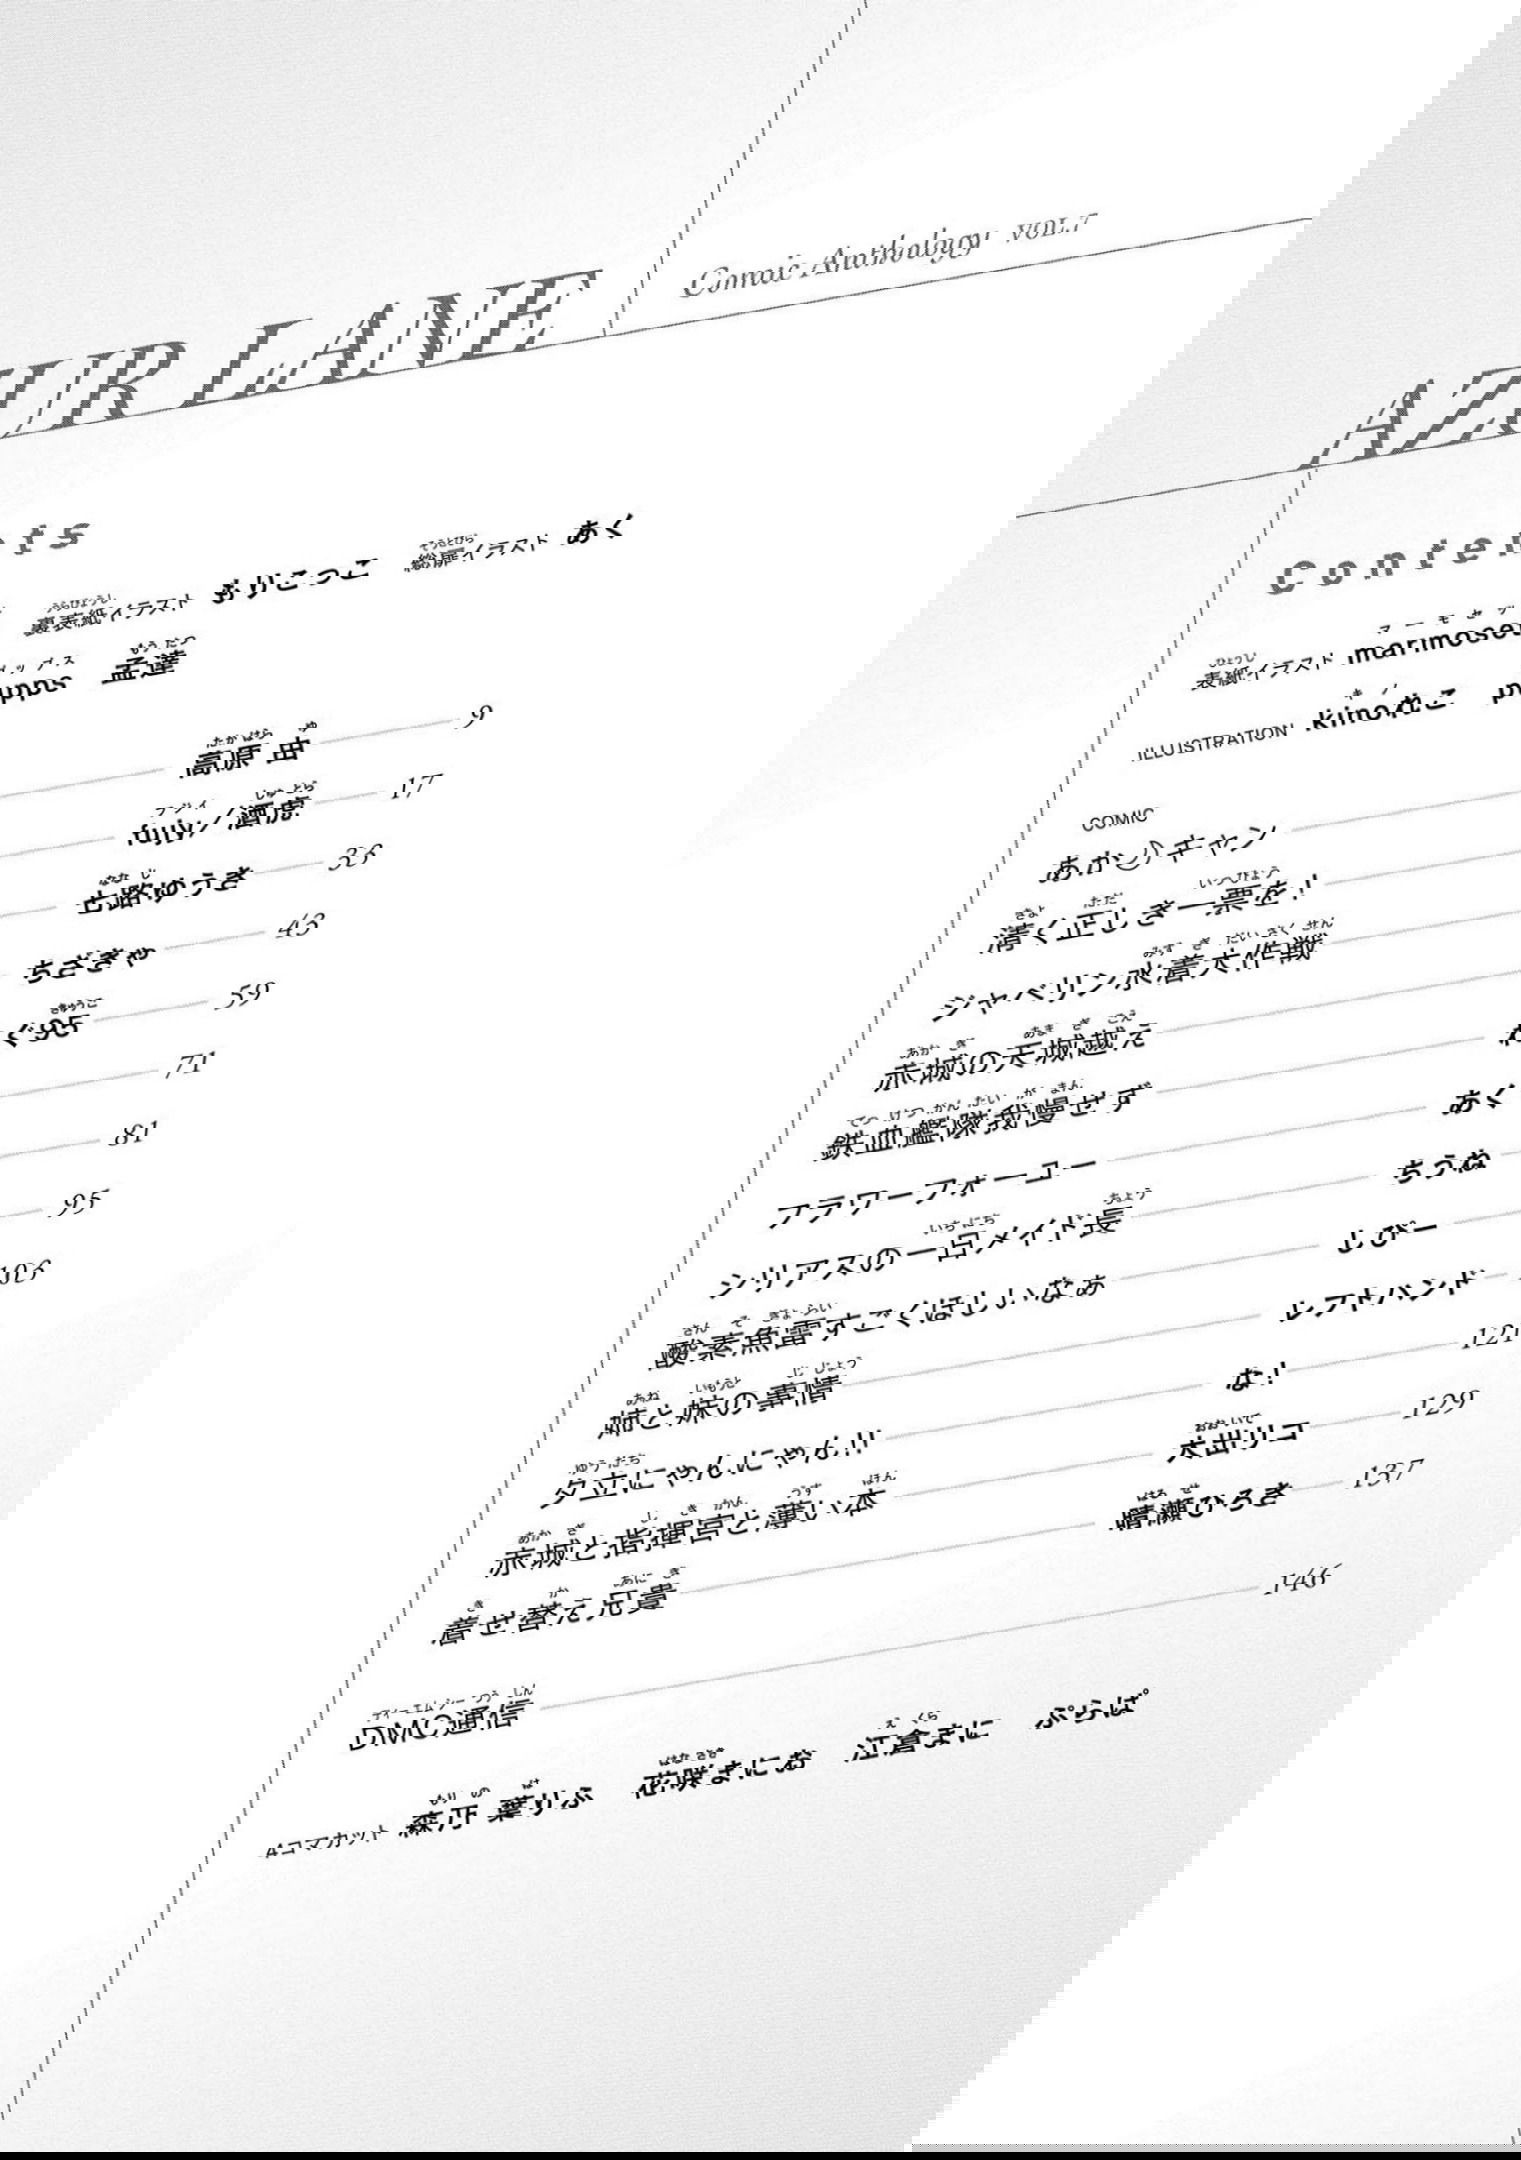 Comic Anthology VOL.7
UR LANE
nts
裏表紙イラスト もりこっこ 総扉イラスト あく
pps 孟達
高原 由 9
fujy/酒虎 17
七路ゆうき 33
ちざきや 43
ぐ95 59
71
81
95
103
AZ
Conten
表紙イラスト marmoset
ILLUSTRATION kinoねこ p
COMIC
あか♪キャン
清く正しき一票を!
ジャベリン水着大作戦
赤城の天城越え
鉄血艦隊我慢せず
フラワーフォーユー あく
シリアスの一日メイド長 ちうね
酸素魚雷すごくほしいなぁ しびー
姉と妹の事情 レフトハンド
夕立にゃんにゃん!! な! 121
赤城と指揮官と薄い本 大出リコ 129
着せ替え兄貴 晴瀬ひろき 137
DMC通信 146
4コマカット 森乃 葉りふ 花咲まにお 江倉まに ぷらぱ